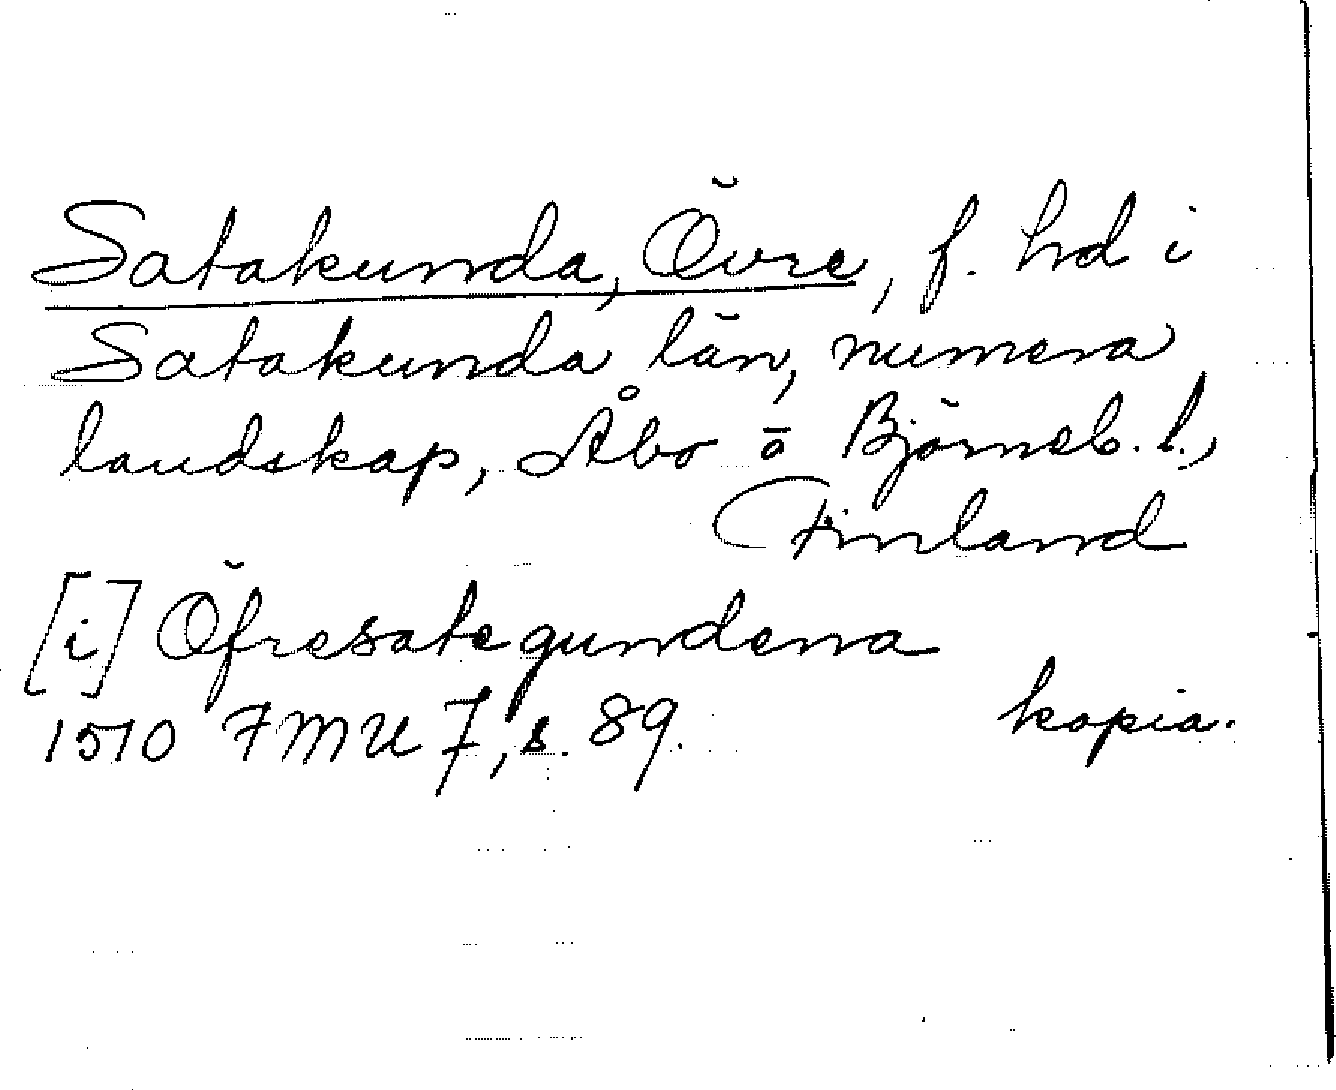 Satakunda, Övre, f. hd i
Satakunda län, numera
landskap, Åbo o Björneb. l.,
Finland
[i] Öfresategundena
1510 FMU 7, s. 89. kopia.